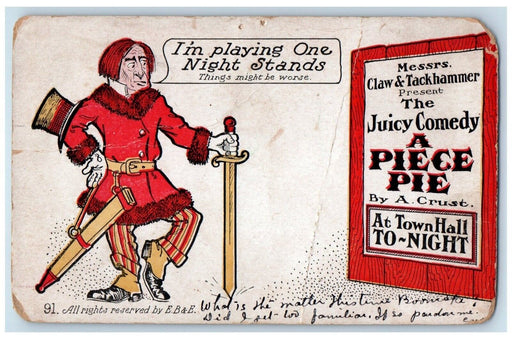 I'm playing One
Night Stands
Things might be worse.
Messrs.
Claw & Tackhammer
Present
The
Juicy Comedy
A
PIECE
PIE
By A. Crust.
At Town Hall
TO-NIGHT
91. All rights reserved by E.B&E.
What is the matter
Did I get too familiar. If so pardon me.